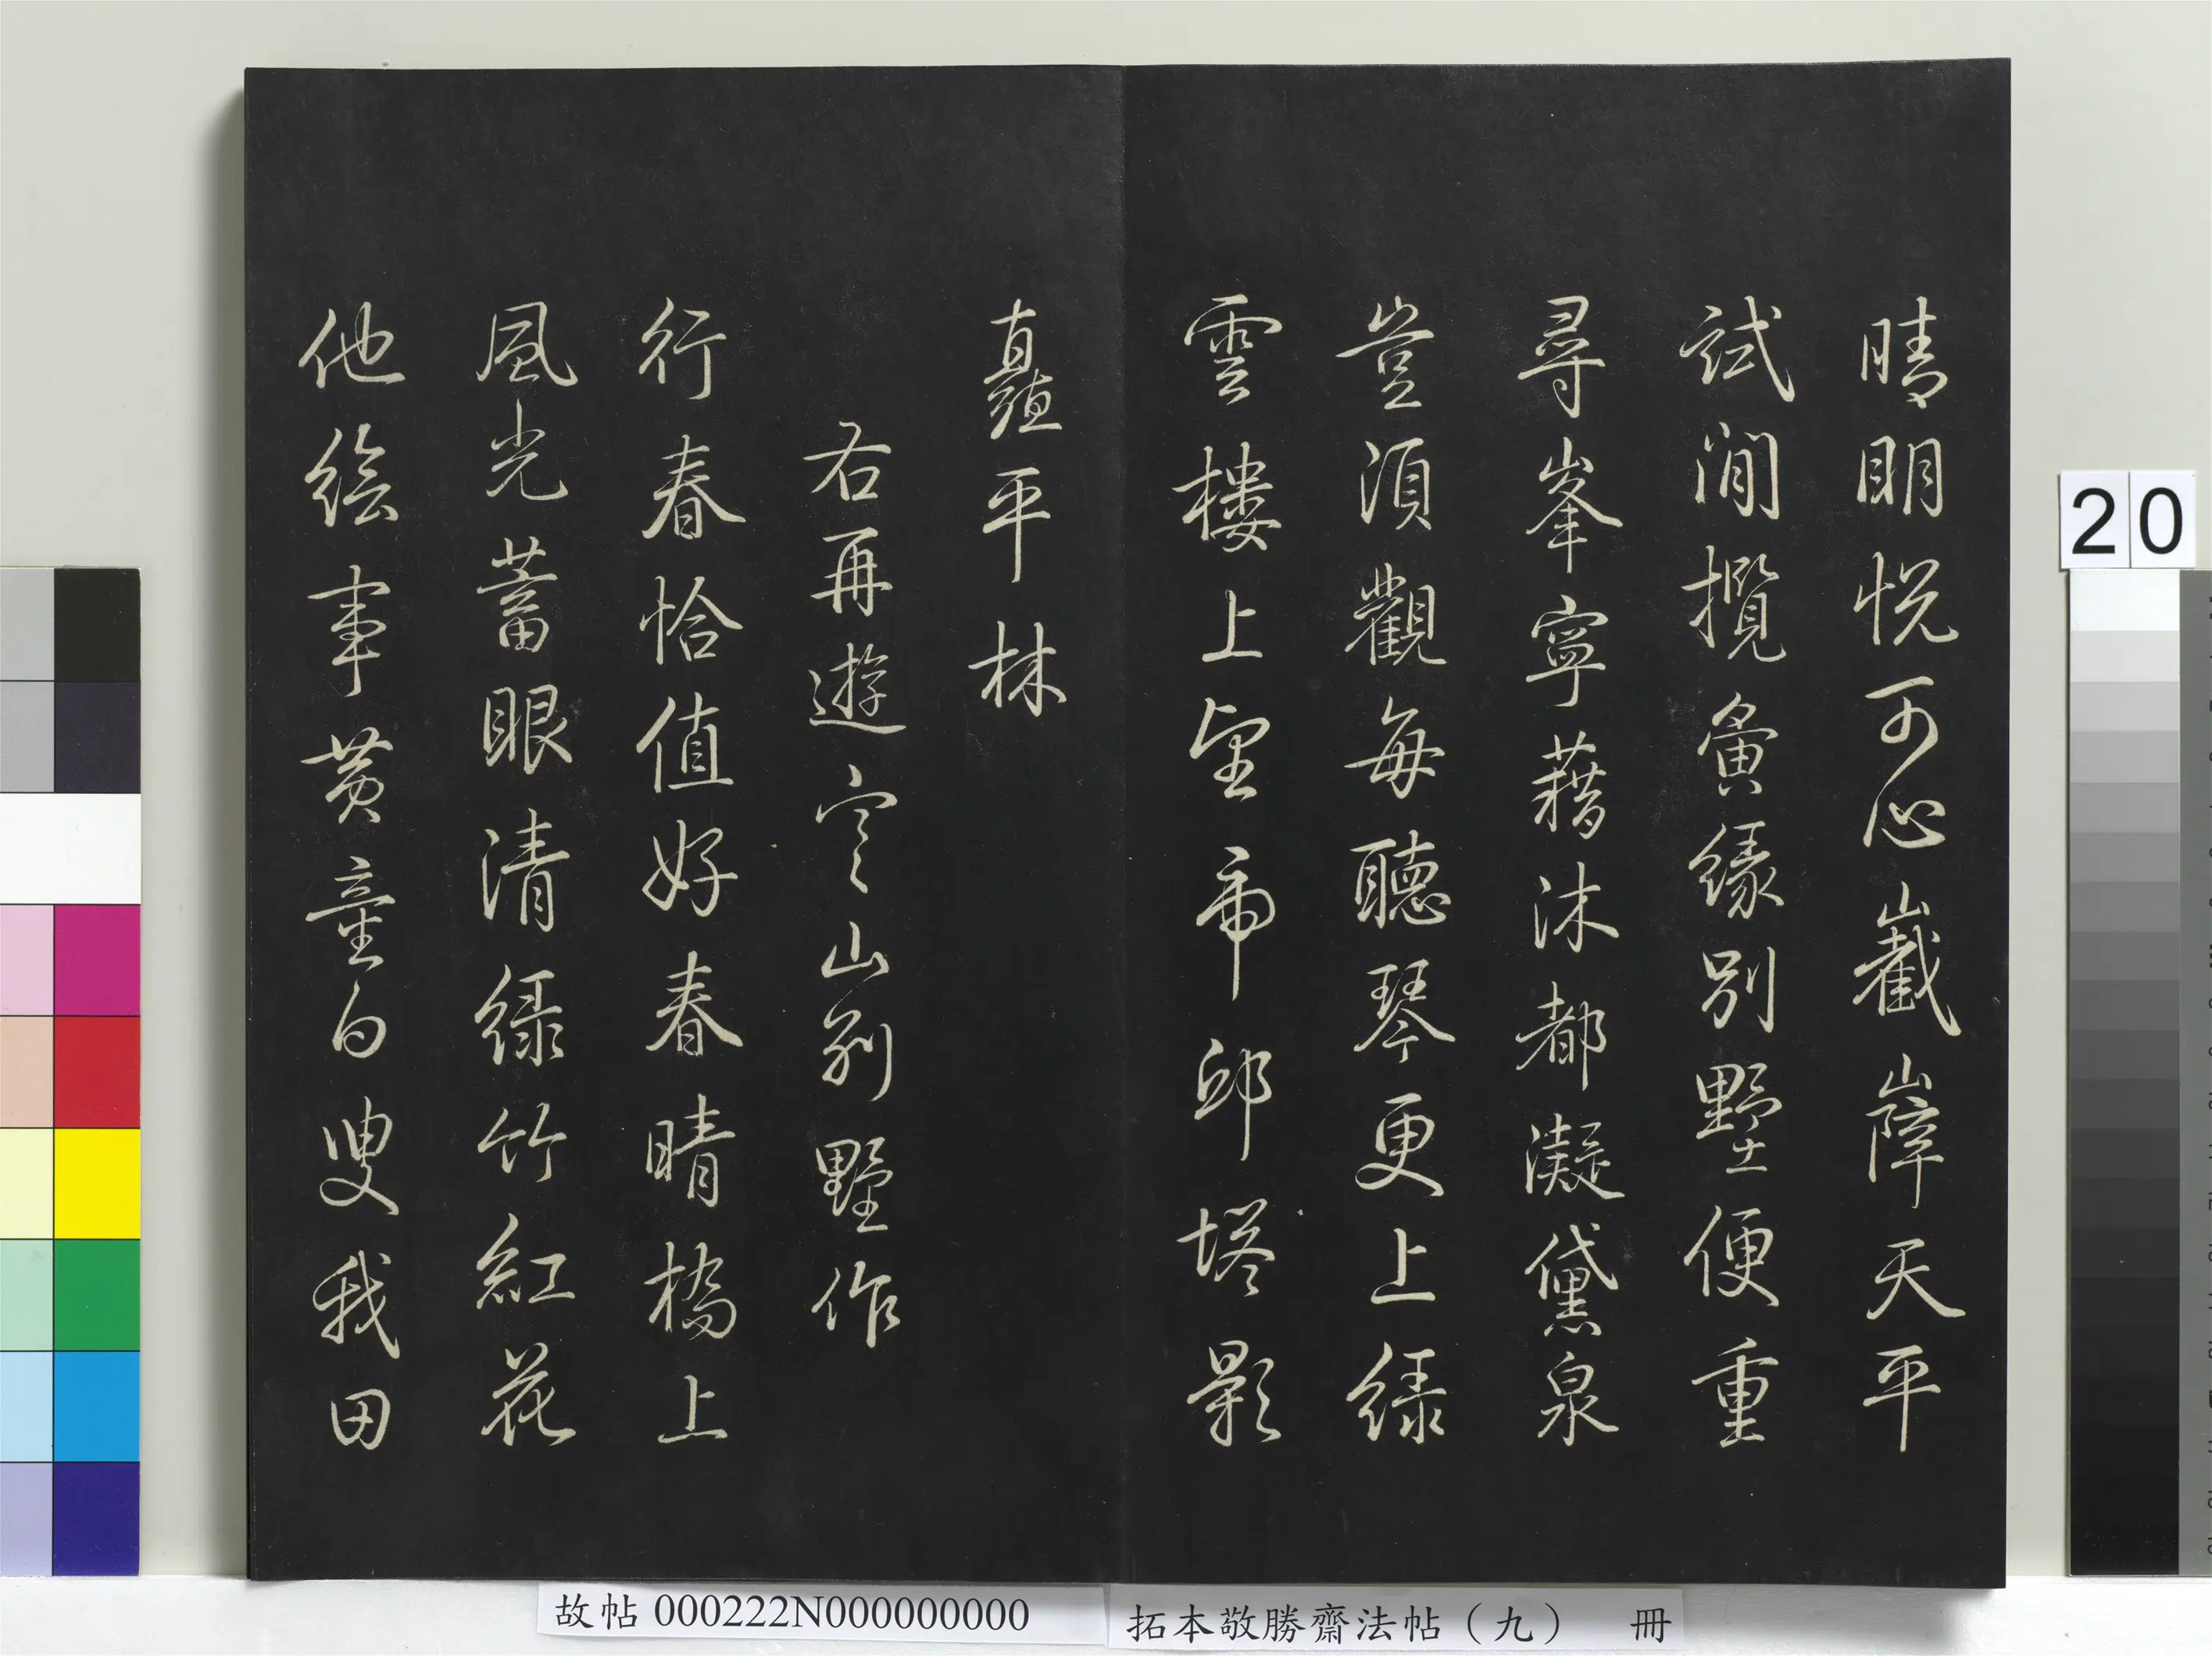 晴明悅可心巀嶂天平
試閒攬夤緣別墅便重
尋峯寧藉沐都凝黛泉
豈須觀每聽琴更上綠
雲樓上望帝邱塔影
矗平林
右再遊寒山別墅作
行春恰值好春晴橋上
風光蓄眼清綠竹紅花
他繪事黃童白叟我田
20
故帖 000222N000000000
拓本敬勝齋法帖（九） 冊